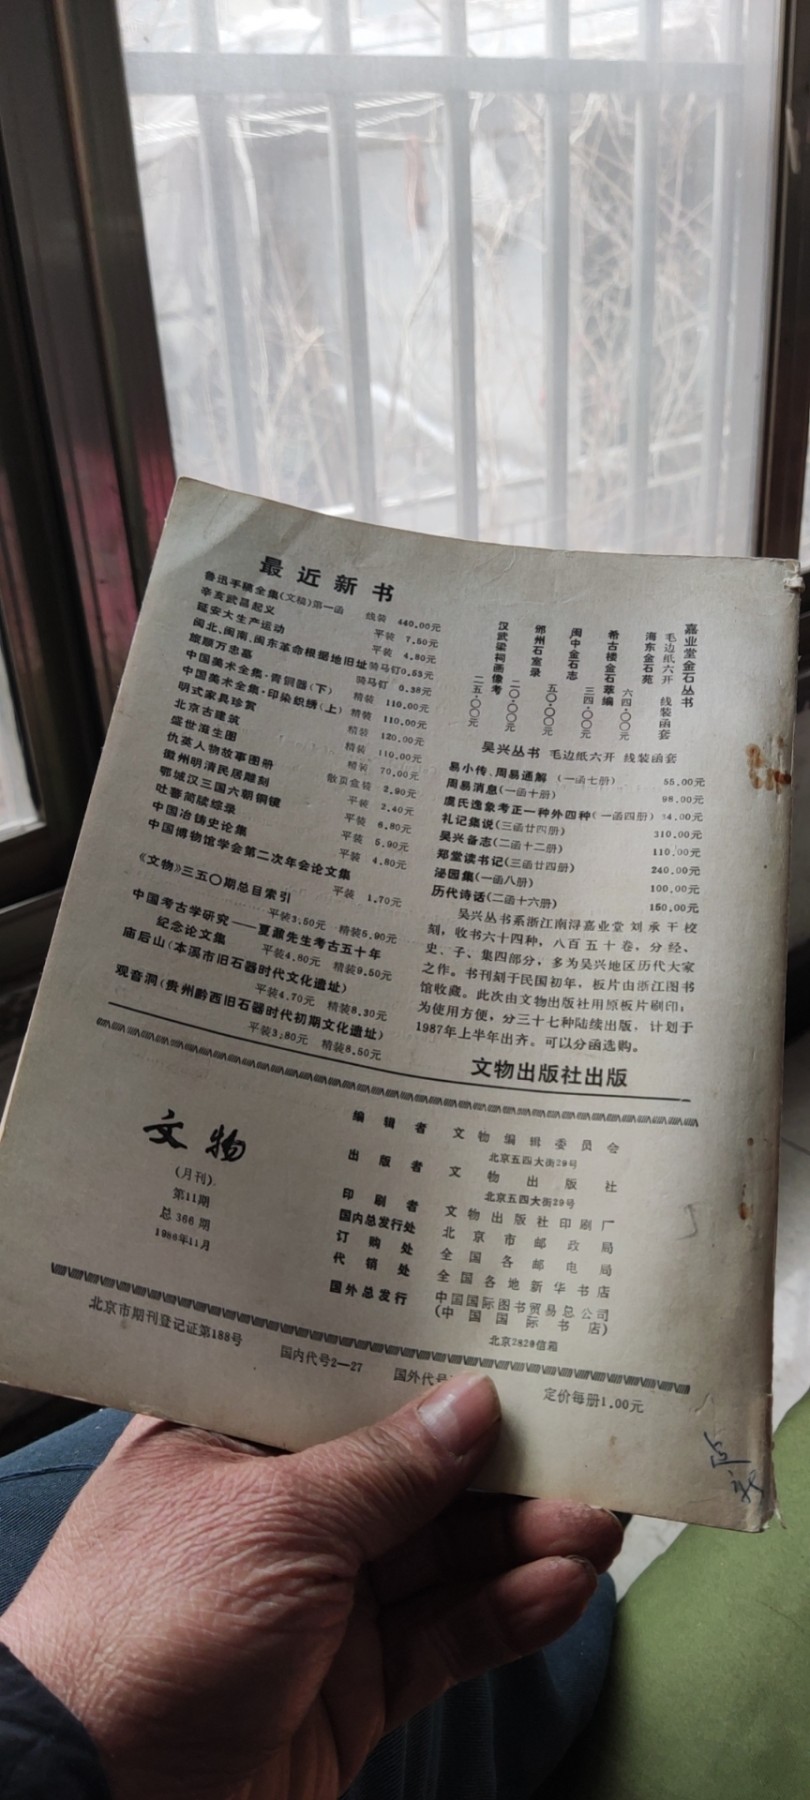 最近新书
鲁迅手稿全集(文稿)第一函 线装 440.00元
辛亥武昌起义 平装 7.50元
延安大生产运动 平装 4.80元
闽北、闽南、闽东革命根据地旧址 骑马钉0.53元
旅顺万忠墓 骑马钉 0.38元
中国美术全集·青铜器(下) 精装 110.00元
中国美术全集·印染织绣(上) 精装 110.00元
明式家具珍赏 精装 120.00元
北京古建筑 精装 110.00元
盛世滋生图 精装 70.00元
仇英人物故事图册 散页盒装 2.90元
徽州明清民居雕刻 平装 2.40元
鄂城汉三国六朝铜镜 平装 6.80元
吐蕃简牍综录 平装 5.90元
中国冶铸史论集 平装 4.80元
中国博物馆学会第二次年会论文集
平装 1.70元
《文物》三五〇期总目索引
平装3.50元 精装5.90元
中国考古学研究——夏鼐先生考古五十年
纪念论文集 平装4.80元 精装9.50元
庙后山(本溪市旧石器时代文化遗址)
平装4.70元 精装8.30元
观音洞(贵州黔西旧石器时代初期文化遗址)
平装3.80元 精装8.50元
嘉业堂金石丛书
毛边纸六开 线装函套
海东金石苑
希古楼金石萃编 六四·〇〇元
闽中金石志 三四·〇〇元
邠州石室录 五〇·〇〇元
二〇·〇〇元
汉武梁祠画像考 二五·〇〇元
吴兴丛书 毛边纸六开 线装函套
易小传、周易通解 (一函七册) 55.00元
周易消息(一函十册) 98.00元
虞氏逸象考正一种外四种(一函四册) 4.00元
礼记集说(三函廿四册) 310.00元
吴兴备志(二函十二册) 110.00元
郑堂读书记(三函廿四册) 240.00元
泌园集(一函八册) 100.00元
历代诗话(二函十六册) 150.00元
吴兴丛书系浙江南浔嘉业堂刘承干校
刻，收书六十四种，八百五十卷，分经、
史、子、集四部分，多为吴兴地区历代大家
之作。书刊刻于民国初年，板片由浙江图书
馆收藏。此次由文物出版社用原板片刷印；
为使用方便，分三十七种陆续出版，计划于
1987年上半年出齐。可以分函选购。
文物出版社出版
文物
(月刊)
第11期
总 366 期
1986年11月
编辑者 文物编辑委员会
北京五四大街29号
出版者 文物出版社
北京五四大街29号
印刷者 文物出版社印刷厂
国内总发行处 北京市邮政局
订购处 全国各邮电局
代销处 全国各地新华书店
国外总发行 中国国际图书贸易总公司
(中国国际书店)
北京2820信箱
北京市期刊登记证第188号 国内代号2—27 国外代号 定价每册1.00元